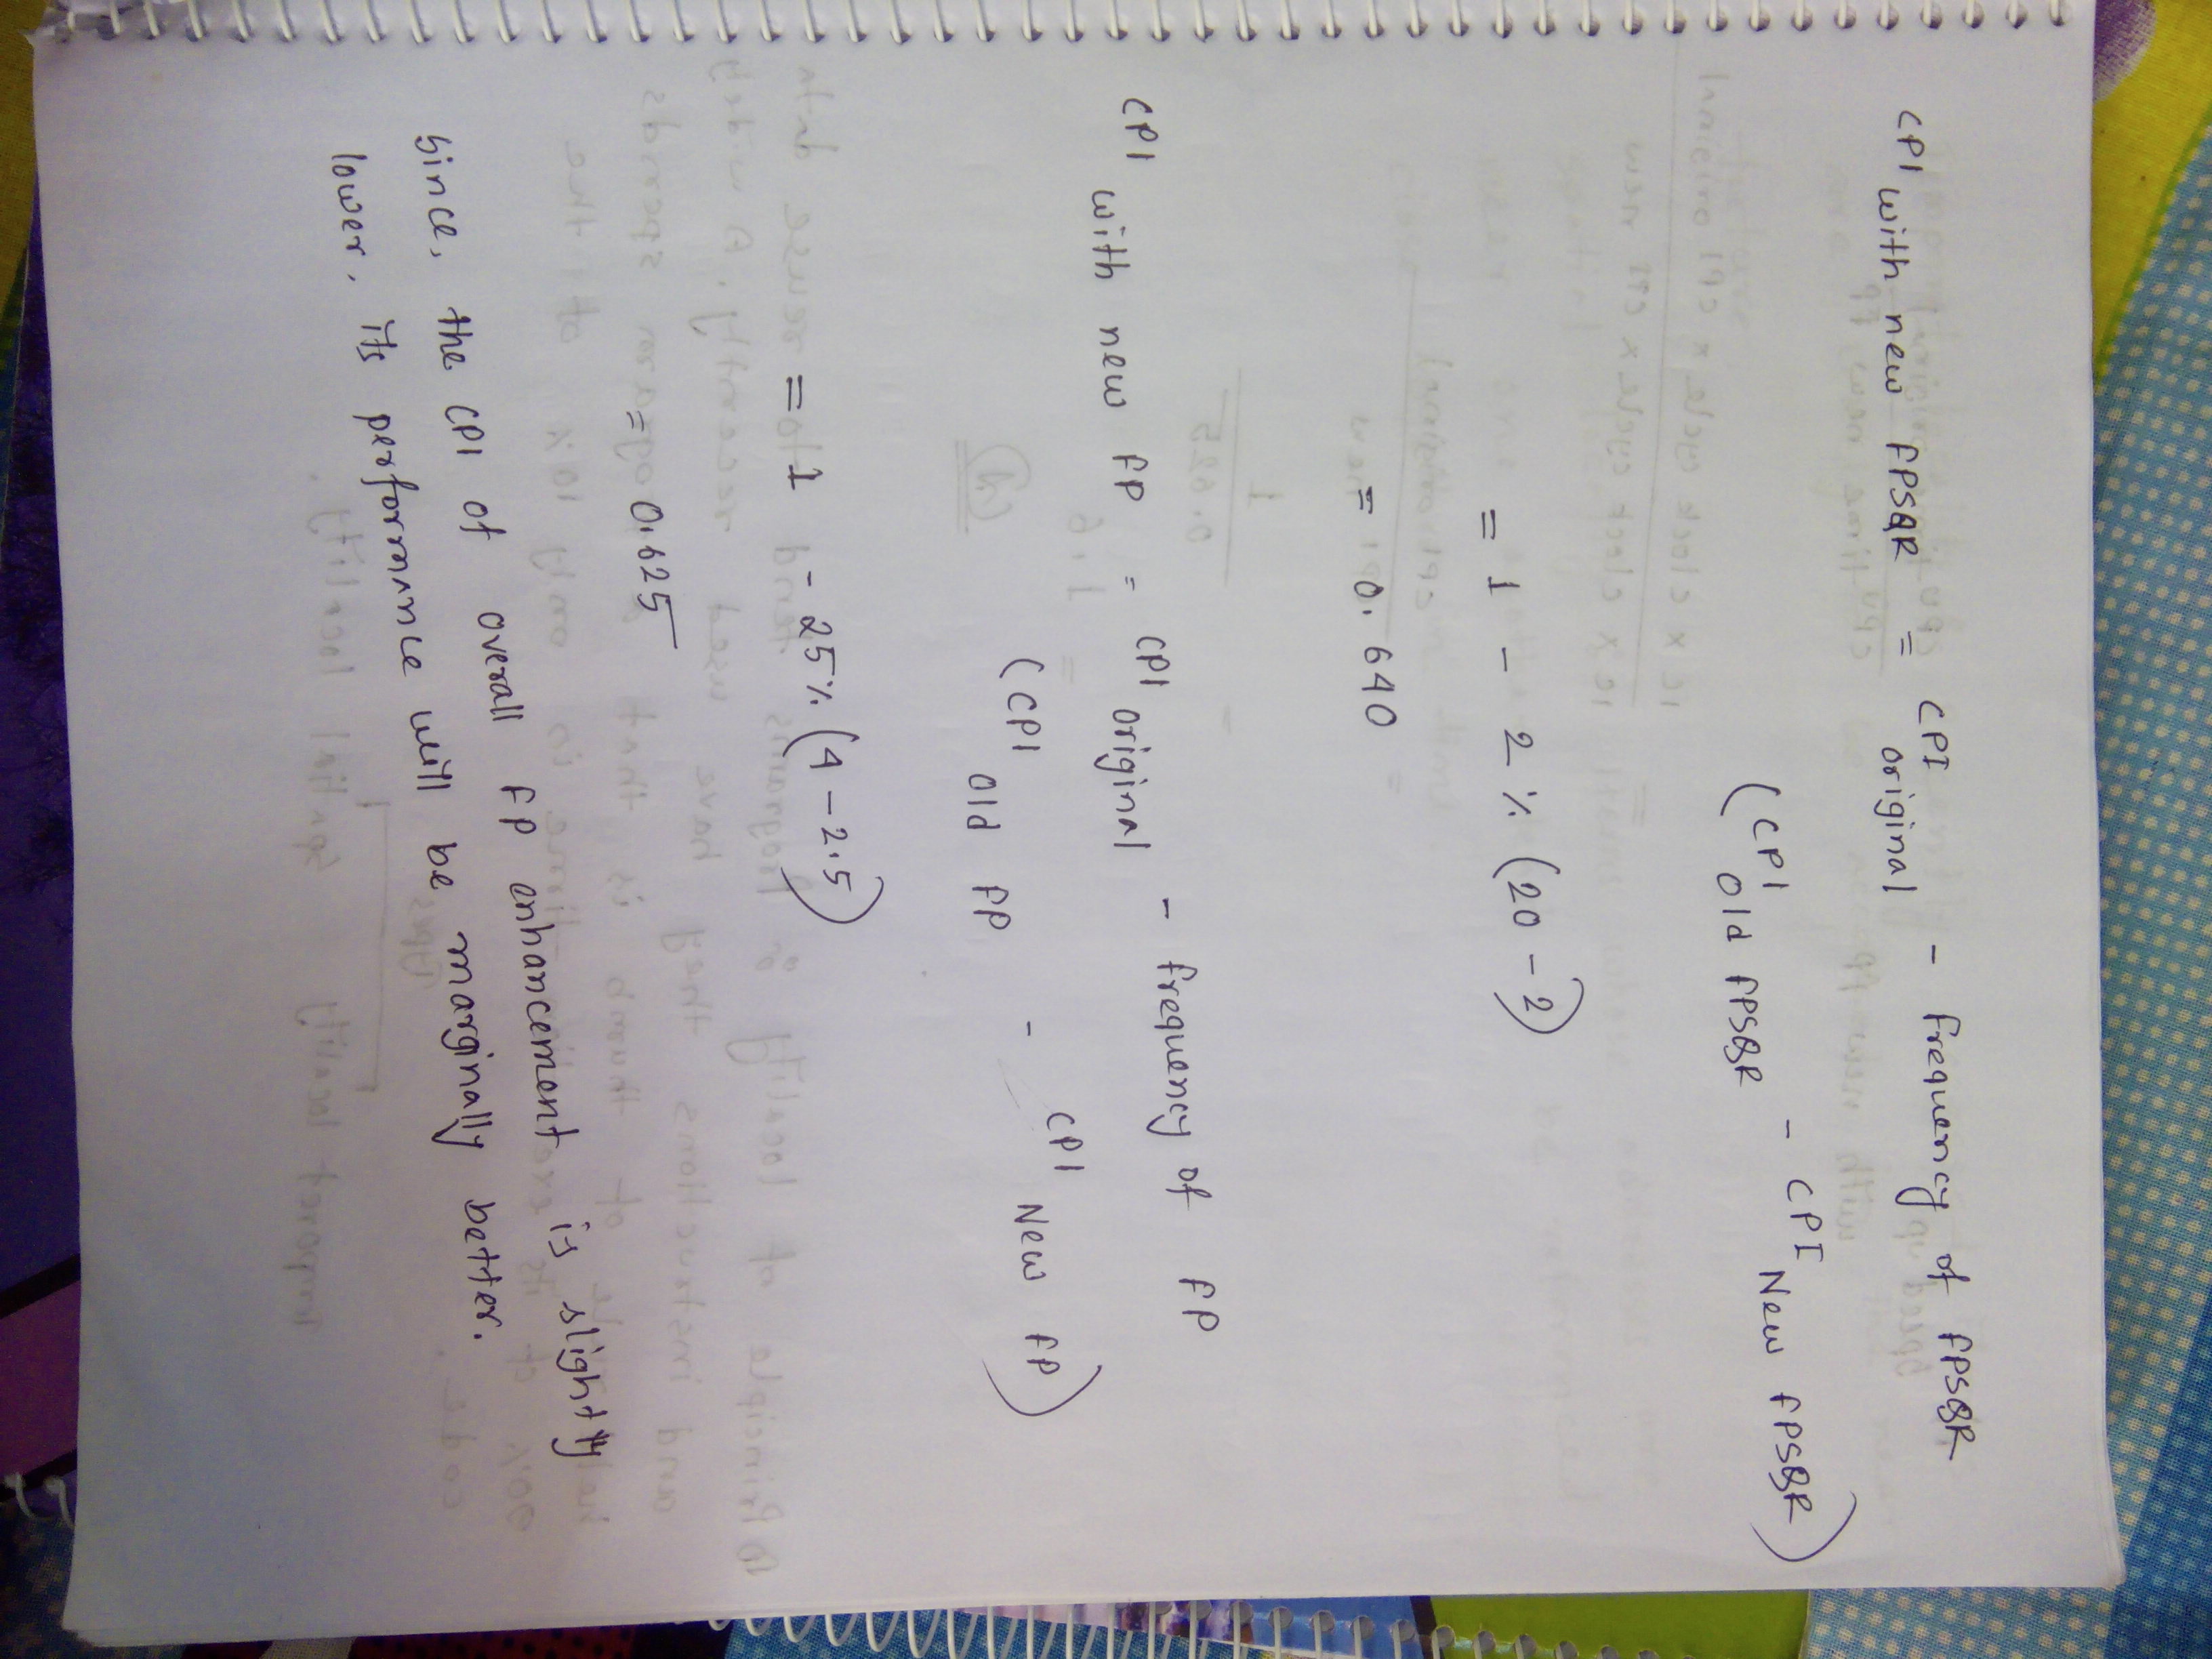 CPI with new FPSQR = CPI original - frequency of FPSQR
(CPI old FPSQR - CPI New FPSQR)
= 1 - 2 % (20 - 2)
= 0.640
CPI with new FP = CPI original - frequency of FP
(CPI old FP - CPI New FP)
= 1 - 25% (4 - 2.5)
= 0.625
Since, the CPI of overall FP enhancement is slightly
lower, its performance will be marginally better.